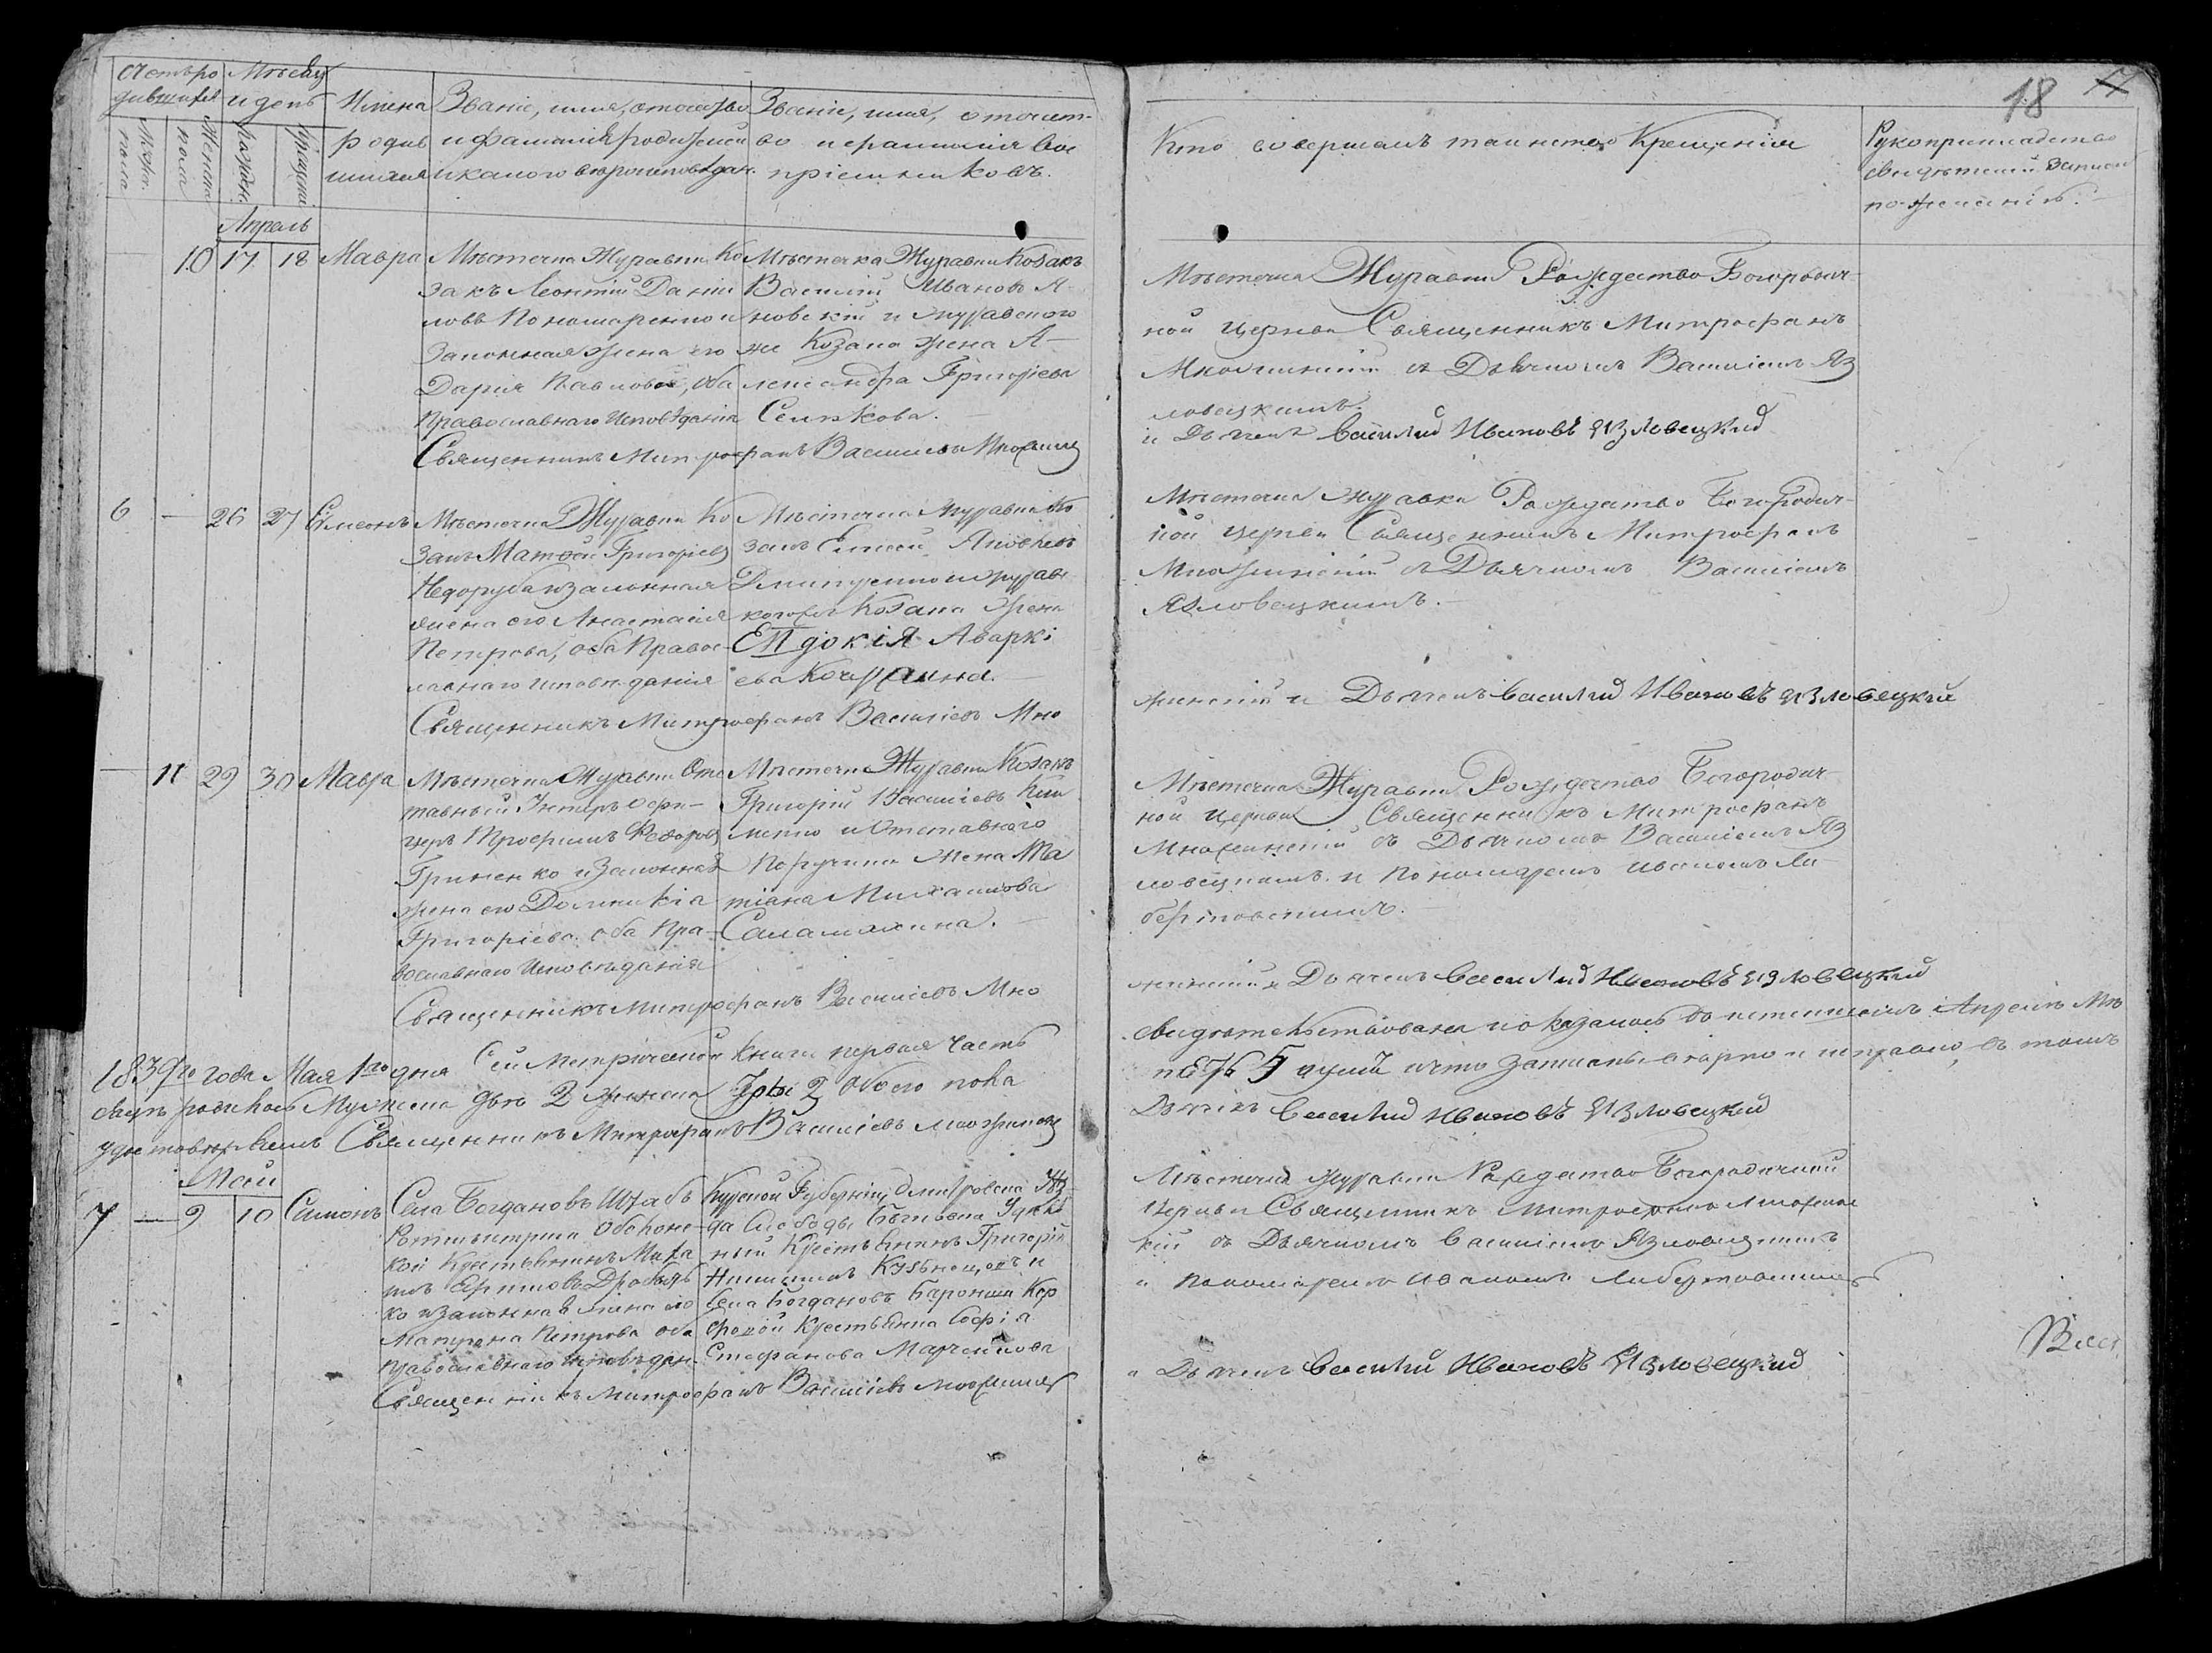 Счетъ ро
дившихся
Мѣсяцъ
и день
Имена
родив
шихся
Званіе, имя, отчество
и фамилія родителей
и какого вѣроисповѣдан.
Званіе, имя, отчест-
во и фамилія вос
пріемниковъ.
Мужес.
пола
Женска
пола
Рожден.
Крещені
Апрель
10 17 18 Мавра
Мѣстечка Журавки Ко
закъ Леонтій Даніи
ловъ Пономаренко и
Законная жена его
Дарія Павлова, оба
Православнаго Исповѣданія
Мѣстечка Журавки Козакъ
Василій Ивановъ Я-
новскій и Журавского
же Козака жена А-
лександра Григоріева
Сенькова.
Священникъ Митрофанъ Василіевъ Множинс
6 — 26 27 Симеонъ
Мѣстечка Журавки Ко
закъ Матфей Григоріевъ
Недоруба и законная
жена его Анастасія
Петрова, оба Правос-
лавнаго исповѣданія
Мѣстечка Журавки Ко
закъ Елисей Яковлевъ
Дмитренко и Журав
когоже Козака Жена
Евдокія Аваркі
ева
Священникъ Митрофанъ Василіевъ Мно
— 11 29 30 Мавра
Мѣстечка Журавки Отс
тавный Унтеръ Офи-
церъ Трофимъ Федоровъ
Гриненко и Законная
жена его Домникіа
Григоріева оба Пра-
вославнаго Исповѣданія
Мѣстечка Журавки Козакъ
Григорій Василіевъ Кли
менко и Отставного
Поручика Жена Та
тіана Михайлова
Саламахина.
Священникъ Митрофанъ Василіевъ Мно
1839го года Мая 1го дня Сей Метрической Книги первая Часть
родилось Мужеска двѣ 2 Женска Три обоего пола
Священникъ Митрофанъ Василіевъ Множинскій
Май
7 — 9 10 Симонъ
Села Богдановъ Штабъ
Ротмистрши Оболонс-
кой Крестьянинъ Миха
илъ Ефимовъ Дробязъ
ко и законная жена его
Матрена Петрова оба
православнаго исповѣдан-
Курской Губерніи Дмитровска Уѣз
да Слободы
ный Крестьянинъ Григорій
Никитинъ Кузьнецовъ и
Села Богдановъ Баронши Кор
фовой Крестьянка Софіа
Стефанова Марченкова
Священникъ Митрофанъ Василіевъ Множинскій
18 17
Кто совершалъ таинство Крещенія
Рукоприкладство
свидѣтелей записи
по желанію.
Мѣстечка Журавки Рождество Богородич-
ной церкви Священникъ Митрофанъ
Множинскій съ Дьячкомъ Василіемъ Яз
ловецкимъ.
и Дьячекъ Василий Ивановъ Язловецкий
Мѣстечка Журавки Рождество Богородич-
ной церкви Священникъ Митрофанъ
Множинскій съ Дьячкомъ Василіемъ
Язловецкимъ.
жинскій и Дьячекъ Василий Ивановъ Язловецкий
Мѣстечка Журавки Рождество Богородич-
ной Церкви Священникъ Митрофанъ
Множинскій съ Дьячкомъ Василіемъ Яз
ловецкимъ и Пономаремъ Иваномъ Ли-
бертовскимъ.
жинскій и Дьячекъ Василий Ивановъ Язловецкий
свидѣтельствована и оказалось Апрель Мѣ
5 душъ и что записаны и исправно, въ томъ
Дьячекъ Василий Ивановъ Язловецкий
Мѣстечка Журавки Рождество Богородичной
Церкви Священникъ Митрофанъ Множинс
кій съ Дьячкомъ Василіемъ Язловецкимъ
и Пономаремъ Иваномъ Либертовскимъ
и Дьячекъ Василий Ивановъ Язловецкий